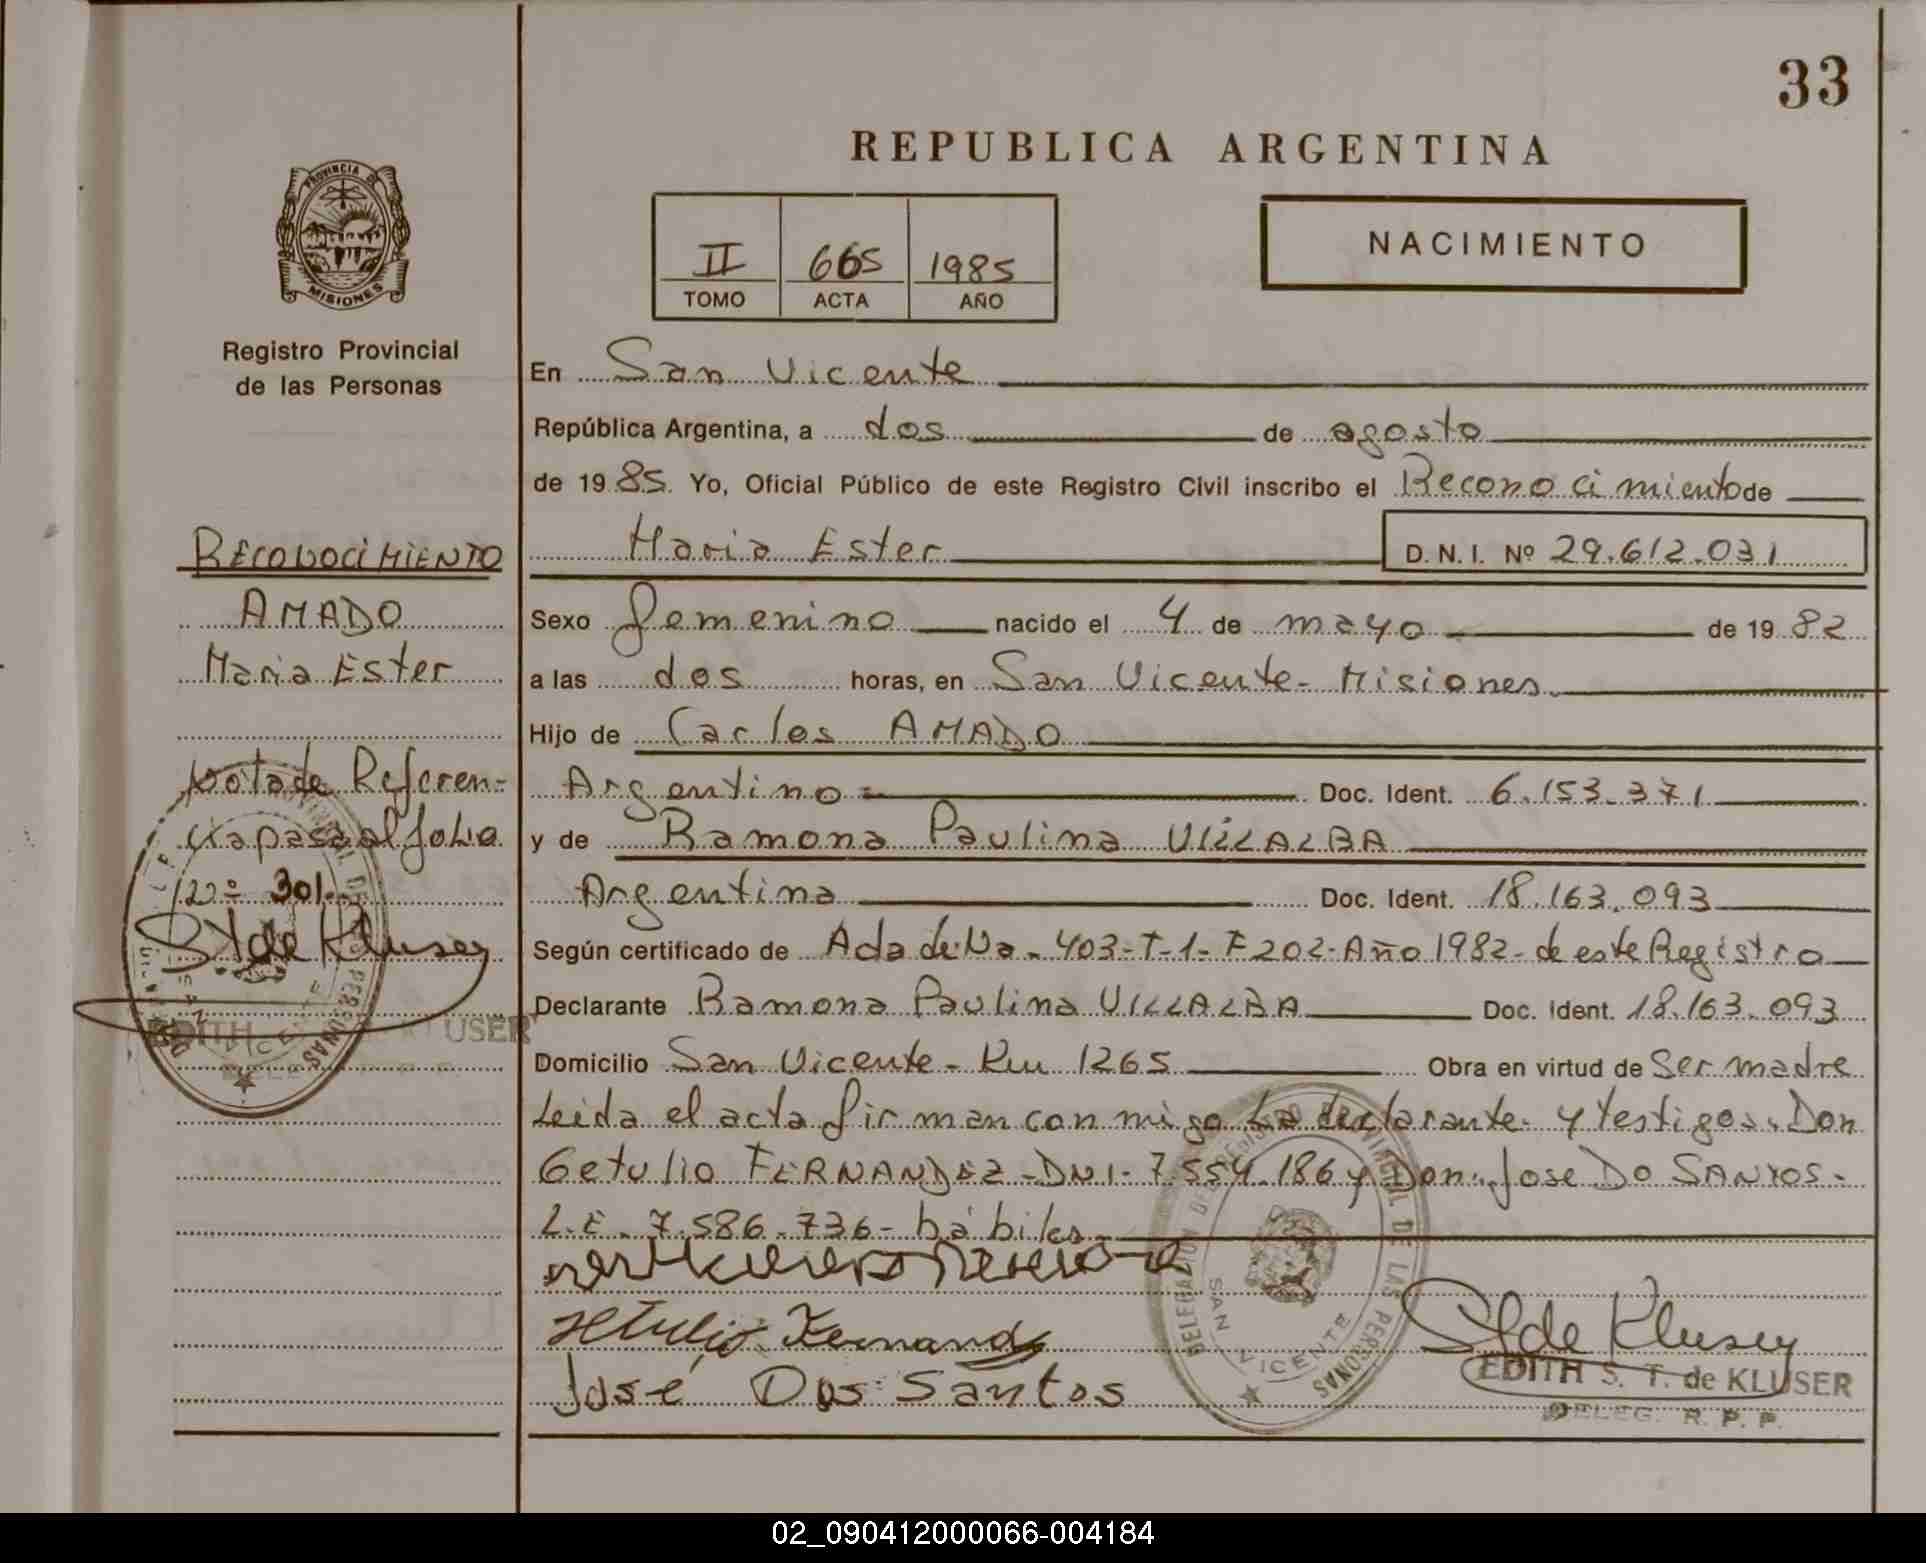 33
REPUBLICA ARGENTINA
PROVINCIA DE
MISIONES
II 665 1985
TOMO ACTA AÑO
NACIMIENTO
Registro Provincial
de las Personas
RECONOCIMIENTO
AMADO
Maria Ester
Nota de Referen-
cia pasa al folio
Nº 301.
S T de Kluser
EDITH USER
En San Vicente
República Argentina, a dos de agosto
de 1985. Yo, Oficial Público de este Registro Civil inscribo el Reconocimiento de
Maria Ester D.N.I. Nº 29.612.031
Sexo femenino nacido el 4 de mayo de 1982
a las dos horas, en San Vicente - Misiones.
Hijo de Carlos AMADO
Argentino - Doc. Ident. 6.153.371
y de Ramona Paulina VILLALBA
Argentina Doc. Ident. 18.163.093
Según certificado de Acta de Na. 403-T-1-F202-Año 1982- de este Registro
Declarante Ramona Paulina VILLALBA Doc. Ident. 18.163.093
Domicilio San Vicente - Km 1265 Obra en virtud de Ser madre
Leida el acta firman conmigo La declarante y testigos. Don
Getulio FERNANDEZ - DNI - 7.554.186 y Don Jose Do SANTOS -
L.E. 7.586.736 - hábiles.
Getulio Fernandez
José Dos Santos
DELEGACION DEL REGISTRO PROVINCIAL DE LAS PERSONAS
SAN VICENTE
S T de Kluser
EDITH S. T. de KLUSER
DELEG. R. P. P.
02_090412000066-004184